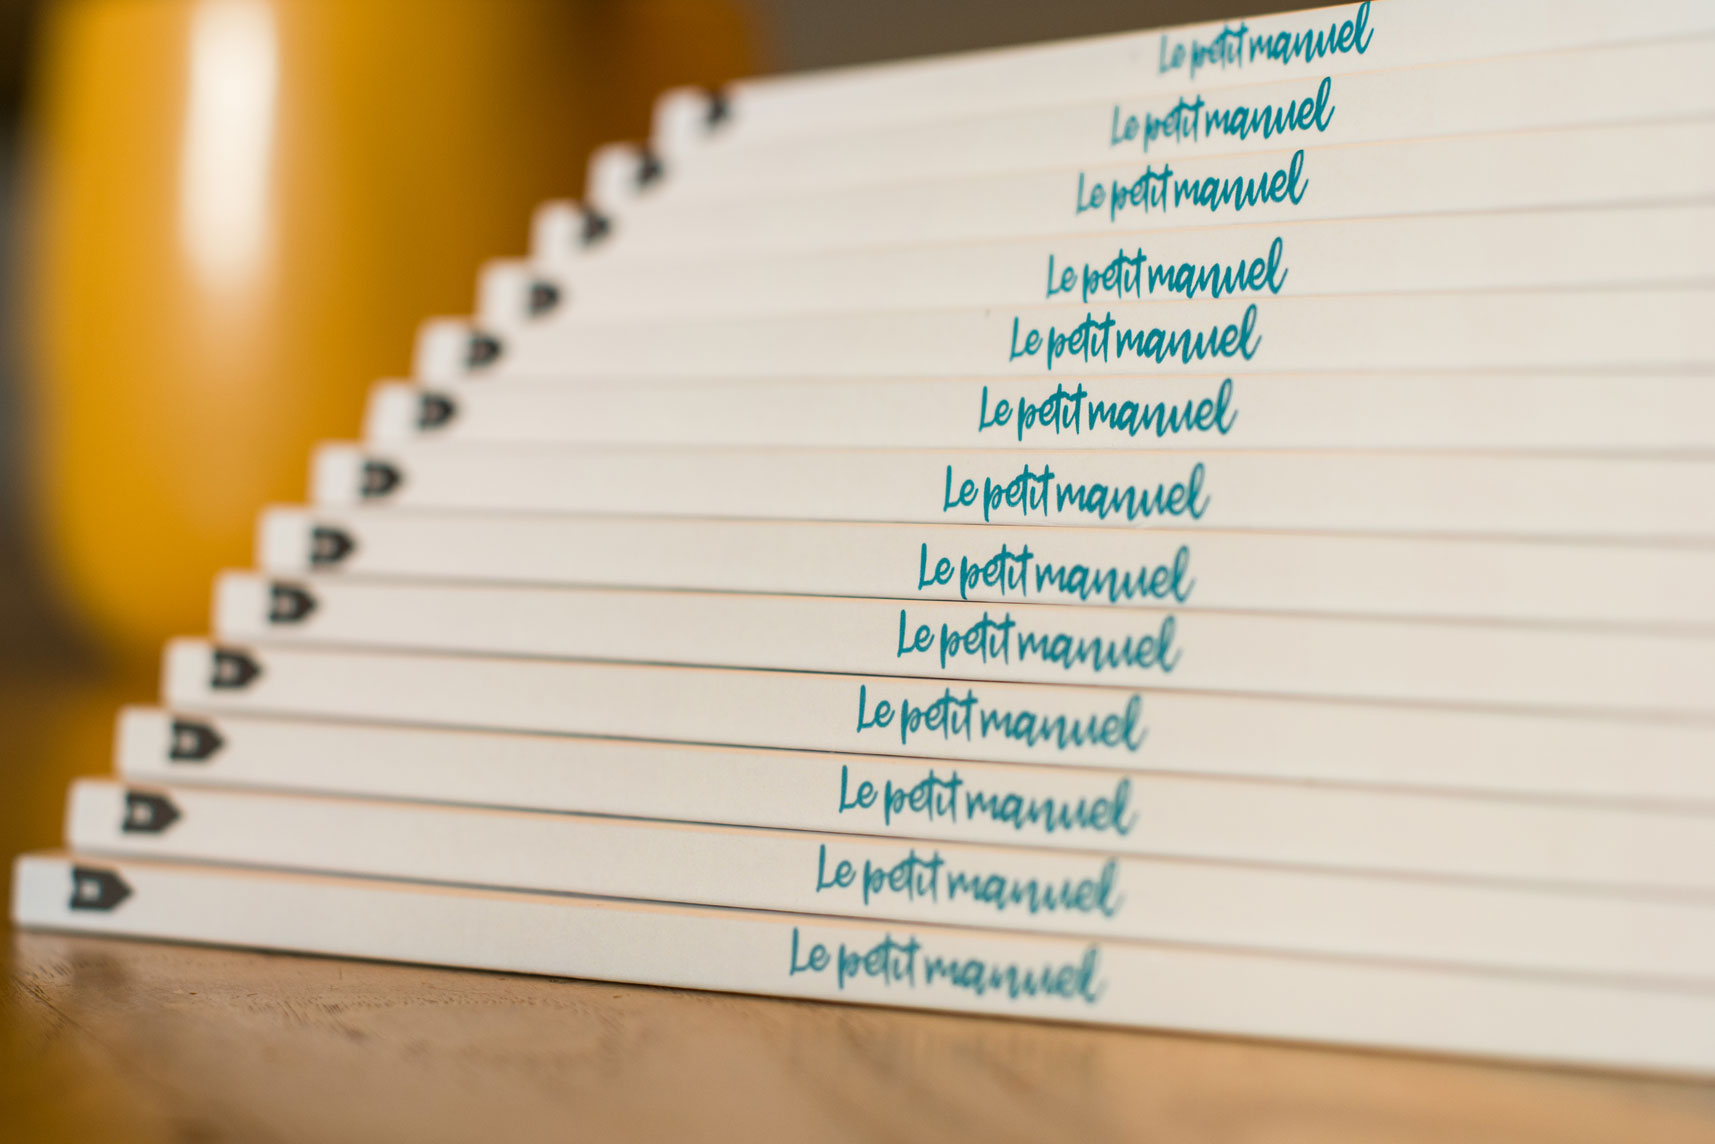 Le petit manuel
Le petit manuel
Le petit manuel
Le petit manuel
Le petit manuel
Le petit manuel
Le petit manuel
Le petit manuel
Le petit manuel
Le petit manuel
Le petit manuel
Le petit manuel
Le petit manuel